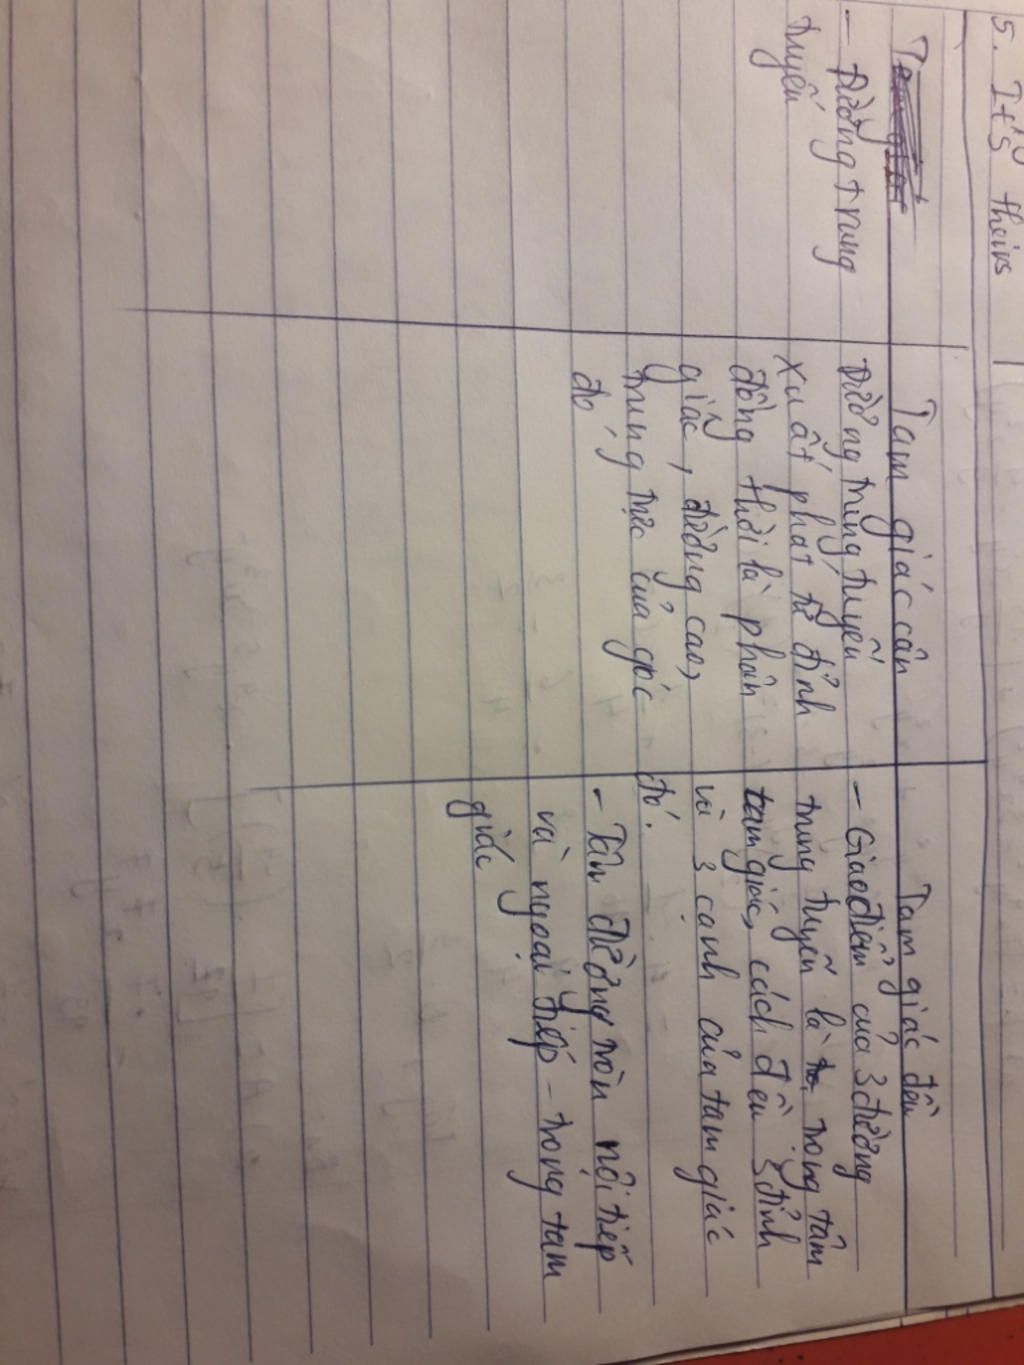 5. It's theirs
Tam giác cân
Tam giác đều
- Đường trung
tuyến
Đường trung tuyến
xuất phát từ đỉnh
đồng thời là phân
giác, đường cao,
trung trực của góc
đó
- Giao điểm của 3 đường
trung tuyến là trọng tâm
tam giác, cách đều 3 đỉnh
và 3 cạnh của tam giác
đó.
- Tâm đường tròn nội tiếp
và ngoại tiếp - trong tam
giác